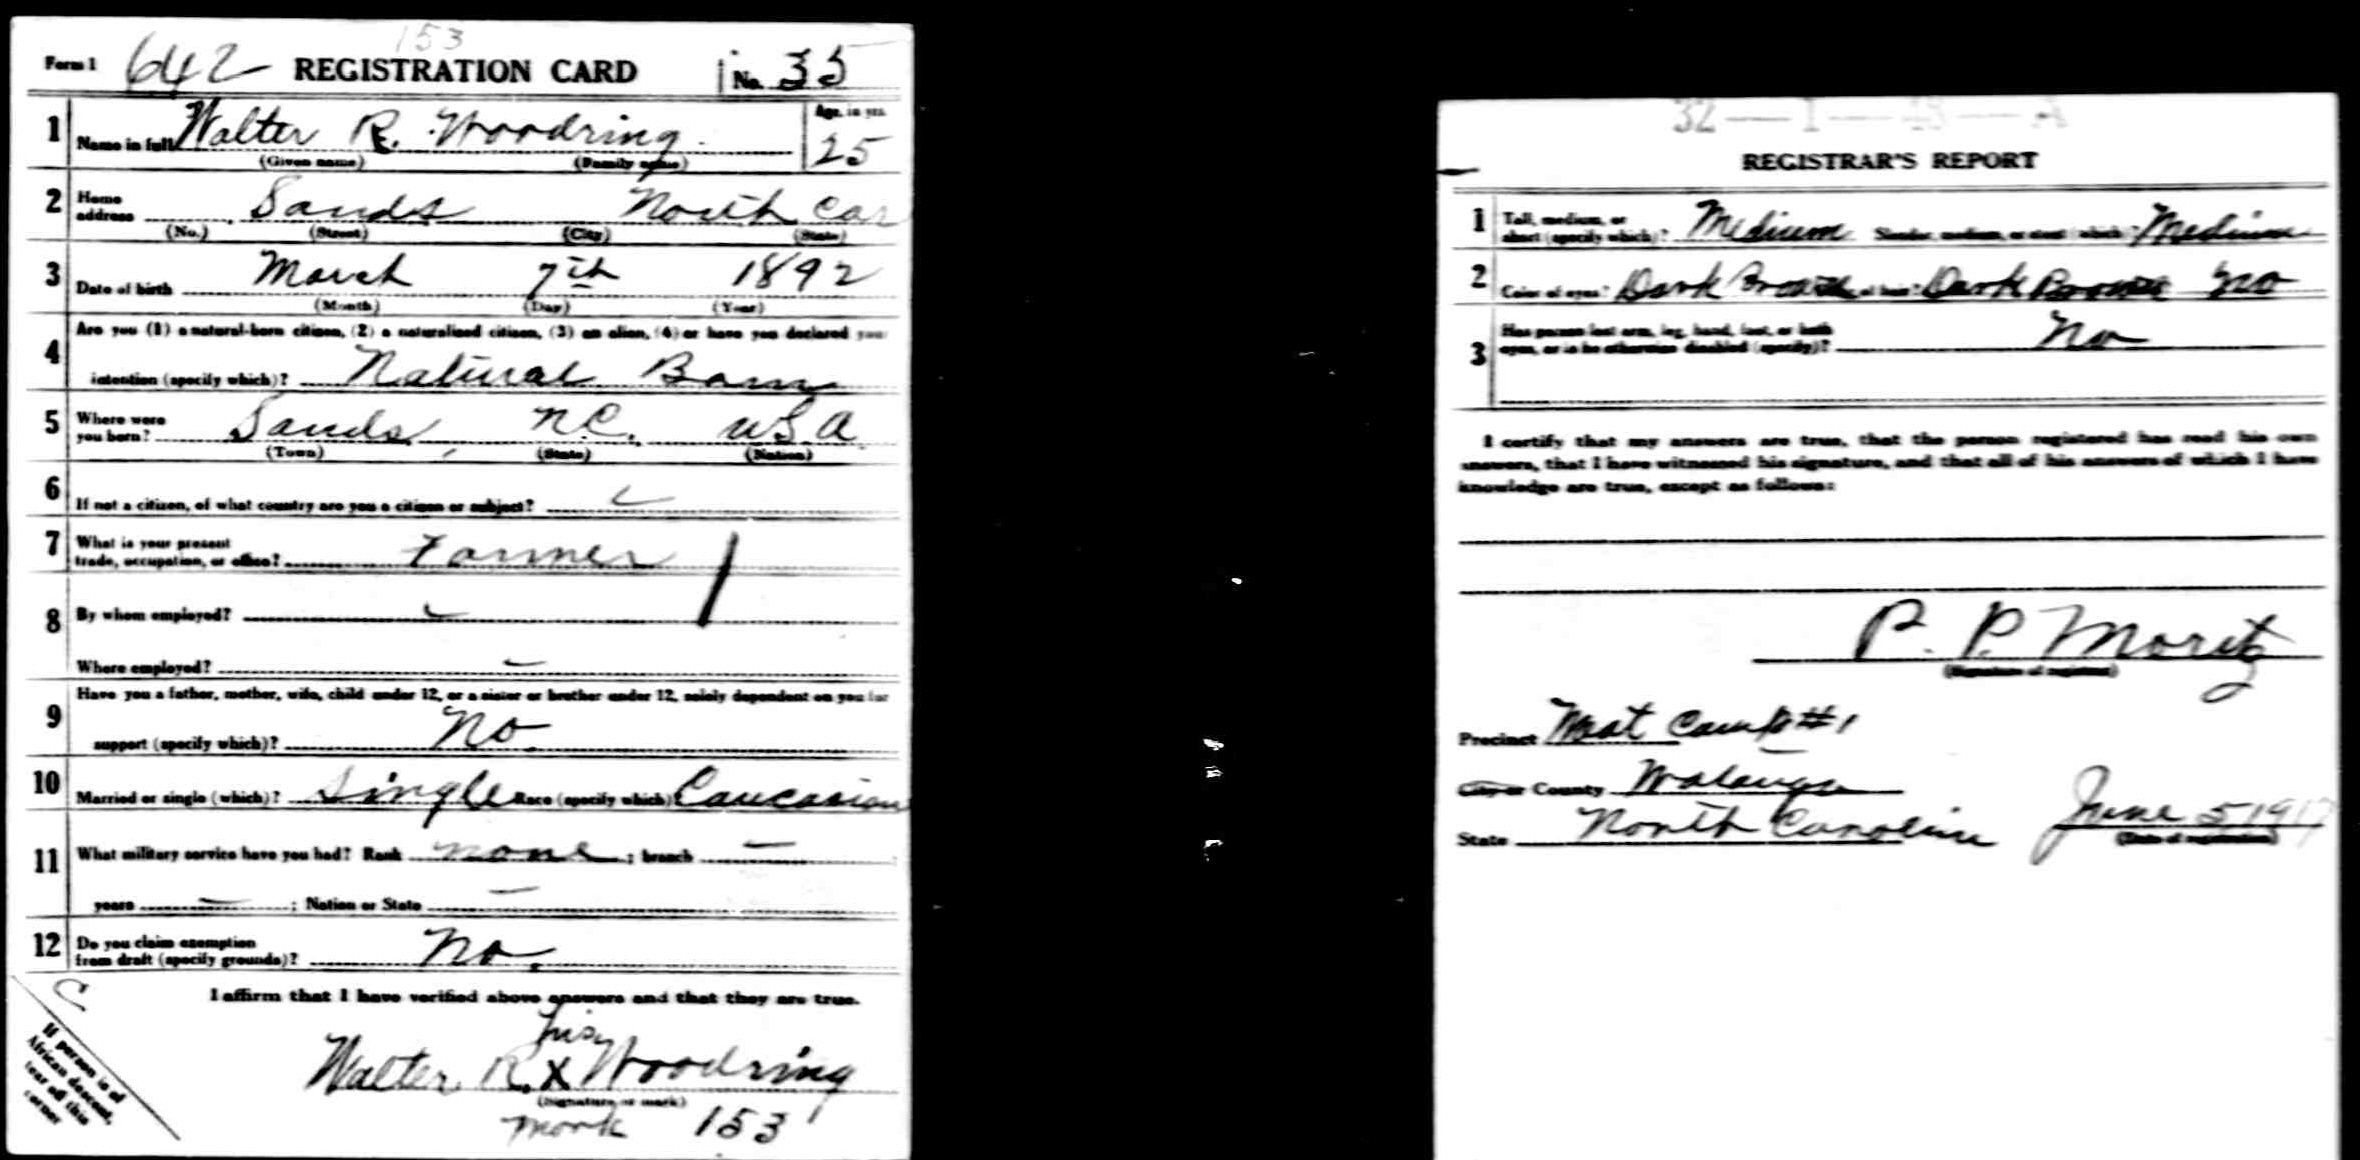 153
Form 1 642 REGISTRATION CARD No. 35
1 Name in full Walter R. Woodring. Age, in yrs. 25
(Given name) (Family name)
2 Home address Sands North Car
(No.) (Street) (City) (State)
3 Date of birth March 7th 1892
(Month) (Day) (Year)
4 Are you (1) a natural-born citizen, (2) a naturalized citizen, (3) an alien, (4) or have you declared your
intention (specify which)? Natural Born
5 Where were you born? Sands, N.C. USA
(Town) (State) (Nation)
6 If not a citizen, of what country are you a citizen or subject?
7 What is your present trade, occupation, or office? Farmer
8 By whom employed? —
Where employed? —
9 Have you a father, mother, wife, child under 12, or a sister or brother under 12, solely dependent on you for
support (specify which)? No.
10 Married or single (which)? Single Race (specify which) Caucasian
11 What military service have you had? Rank none ; branch —
years — ; Nation or State —
12 Do you claim exemption from draft (specify grounds)? No.
I affirm that I have verified above answers and that they are true.
his
Walter R. X Woodring
(Signature or mark)
mark 153
If person is of
African descent,
tear off this
corner
32 — 1 — — A
REGISTRAR'S REPORT
1 Tall, medium, or short (specify which)? Medium Slender, medium, or stout (which)? Medium
2 Color of eyes? Dark Brown of hair? Dark Brown No
3 Has person lost arm, leg, hand, foot, or both
eyes, or is he otherwise disabled (specify)? No
I certify that my answers are true, that the person registered has read his own
answers, that I have witnessed his signature, and that all of his answers of which I have
knowledge are true, except as follows:
P. P. Moritz
(Signature of registrar)
Precinct Camp #1
City or County Watauga
State North Carolina June 5 1917
(Date of registration)